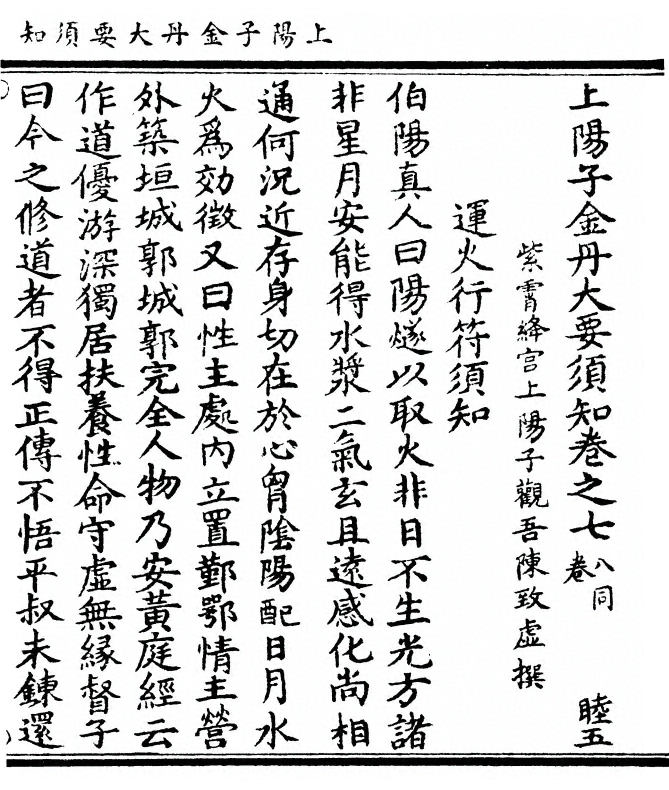 上陽子金丹大要須知
上陽子金丹大要須知卷之七 八同卷 睦五
紫霄絳宫上陽子觀吾陳致虛撰
運火行符須知
伯陽真人曰陽燧以取火非日不生光方諸
非星月安能得水漿二氣玄且遠感化尚相
通何況近存身切在於心胷陰陽配日月水
火爲効徵又曰性主處内立置鄞鄂情主營
外築垣城郭城郭完全人物乃安黃庭經云
作道優游深獨居扶養性命守虛無緣督子
曰今之修道者不得正傳不悟平叔未鍊還